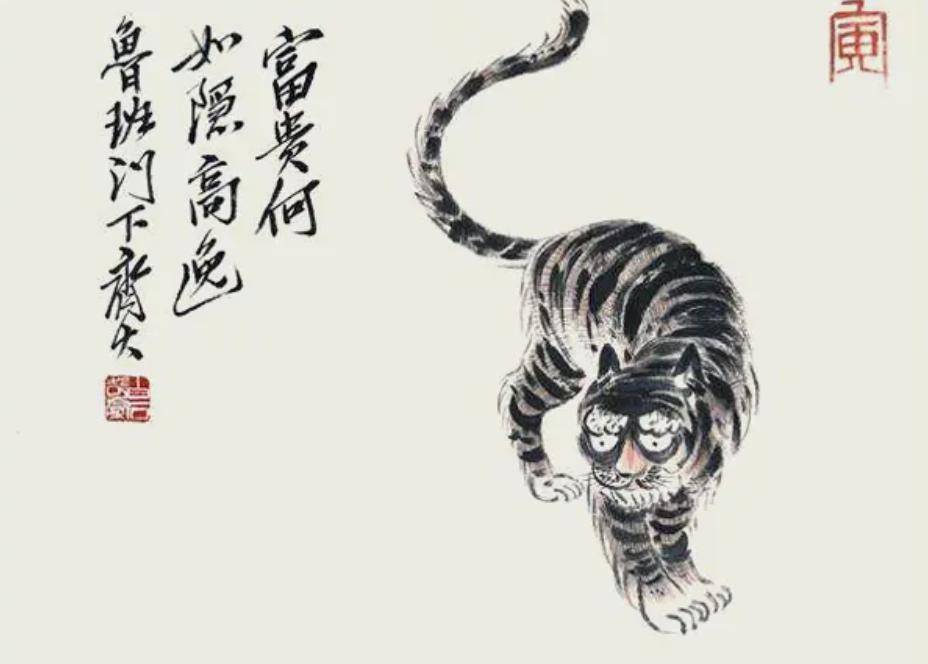 富贵何
如隐高逸
鲁班门下齐大
寅